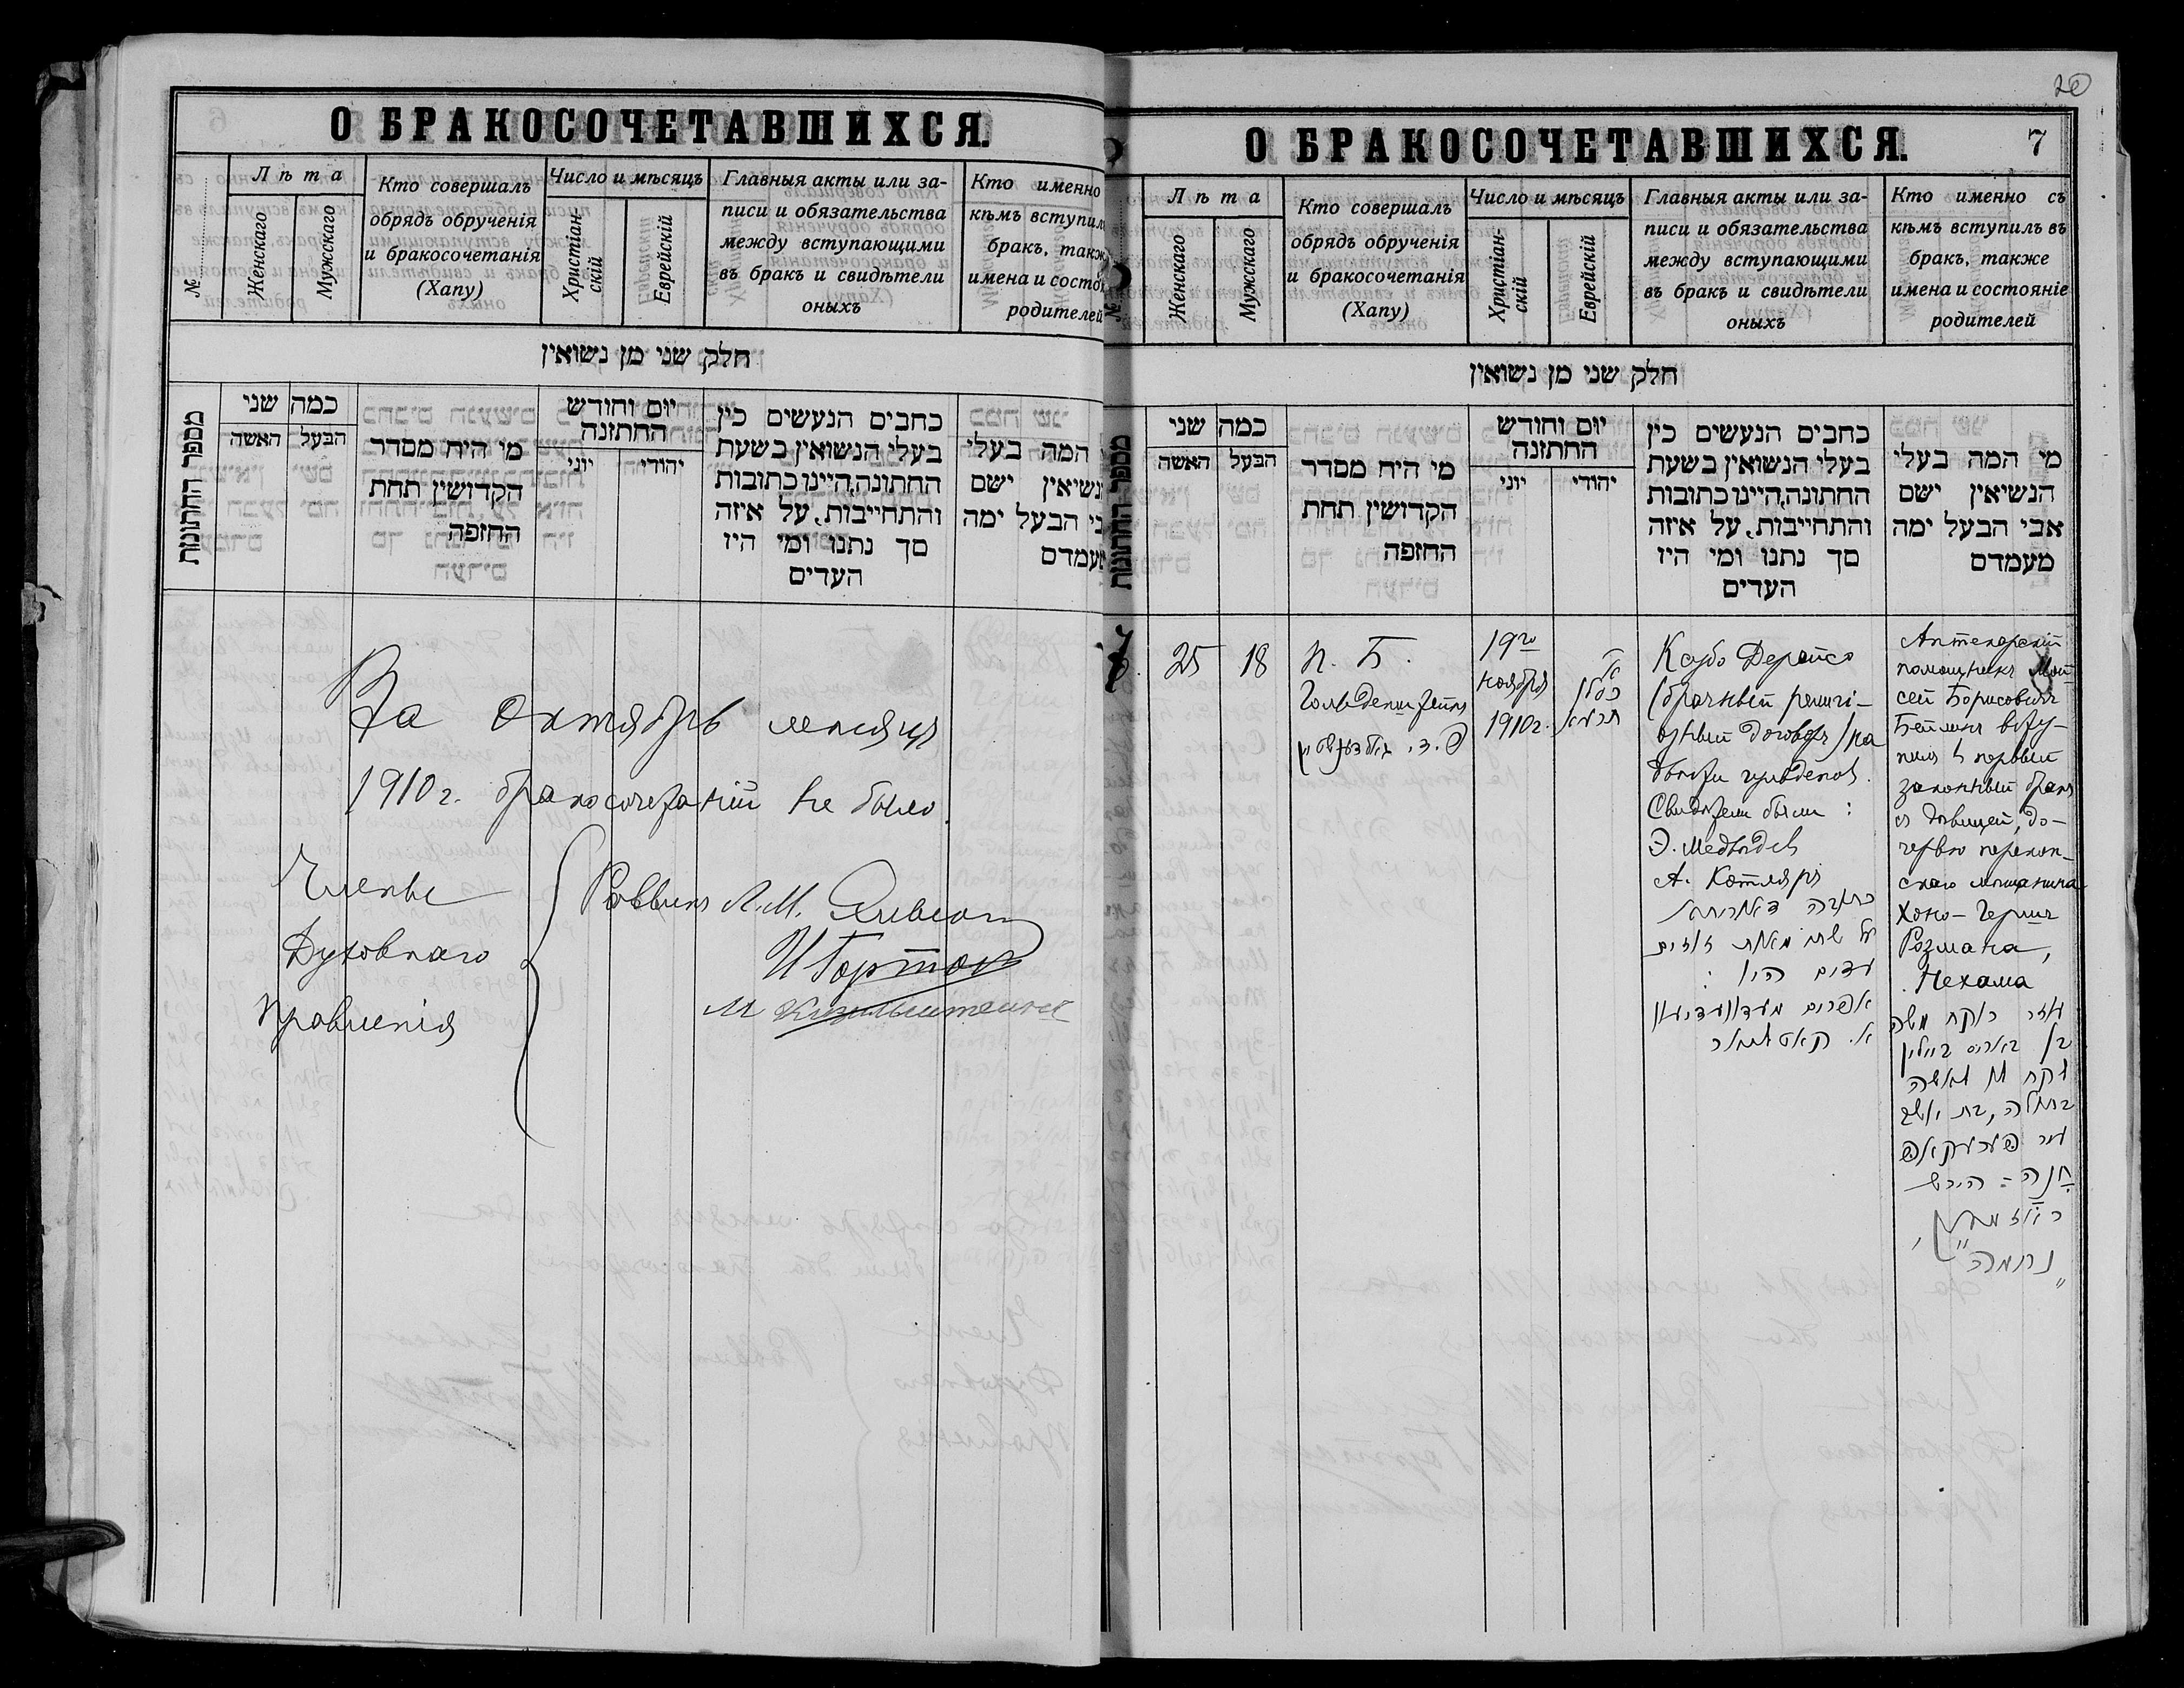 О БРАКОСОЧЕТАВШИХСЯ.
№
Лѣта
Женскаго
Мужскаго
Кто совершалъ
обрядъ обрученія
и бракосочетанія
(Хапу)
Число и мѣсяцъ
Христіан-
скій
Еврейскій
Главныя акты или за-
писи и обязательства
между вступающими
въ бракъ и свидѣтели
оныхъ
Кто именно
кѣмъ вступилъ
бракъ, также
имена и состоя
родителей
חלק שני מן נשואין
מספר החתונות
כמה שני
האשה
הבעל
מי היה מסדר
הקדושין תחת
החופה
יום וחודש
החתונה
יוני
יהודי
כתבים הנעשים בין
בעלי הנשואין בשעת
החתונה, היינו כתובות
והתחייבות, על איזה
סך נתנו ומי היו
העדים
המה בעלי
הנשיאין ושם
אבי הבעל ומה
מעמדם
За Октябрь мѣсяцъ
1910 г. бракосочетаній не было.
Члены
Духовнаго
Правленія
Раввинъ Л.М.
И Гортон
М
20
О БРАКОСОЧЕТАВШИХСЯ.
7
№
Лѣта
Женскаго
Мужскаго
Кто совершалъ
обрядъ обрученія
и бракосочетанія
(Хапу)
Число и мѣсяцъ
Христіан-
скій
Еврейскій
Главныя акты или за-
писи и обязательства
между вступающими
въ бракъ и свидѣтели
оныхъ
Кто именно съ
кѣмъ вступилъ въ
бракъ, также
имена и состояніе
родителей
חלק שני מן נשואין
מספר החתונות
כמה שני
האשה
הבעל
מי היה מסדר
הקדושין תחת
החופה
יום וחודש
החתונה
יוני
יהודי
כתבים הנעשים בין
בעלי הנשואין בשעת
החתונה, היינו כתובות
והתחייבות, על איזה
סך נתנו ומי היו
העדים
מי המה בעלי
הנשיאין ושם
אבי הבעל ומה
מעמדם
25
18
П. Б.
Гольденштейнъ
19го
ноября
1910 г.
כסלו
תרעא
Ксубо Дерайсо
(брачный религі-
озный договоръ) на
двѣсти гульденовъ.
Свидѣтели были:
Э. Медвѣдевъ
А. Котляръ
כתובה דאוריתא
על שתי מאות זוזים
עדים היו:
אפרים מעדוועדיעוו
א. קאטליאר
Аптекарскій
помощникъ Мои-
сей Борисовичъ
Бейлинъ всту-
пилъ въ первый
законный бракъ
съ дѣвицей, до-
черью перекоп-
скаго мѣщанина
Хоно-Герша
Розмана,
Нехама
עוזר רוקח משה
בן באריס ביילין
לקח לו לאשה
בתולה, בת יושב
עיר פערעקאפ
חנה-הירש
ראזמאן,
"נחמה"